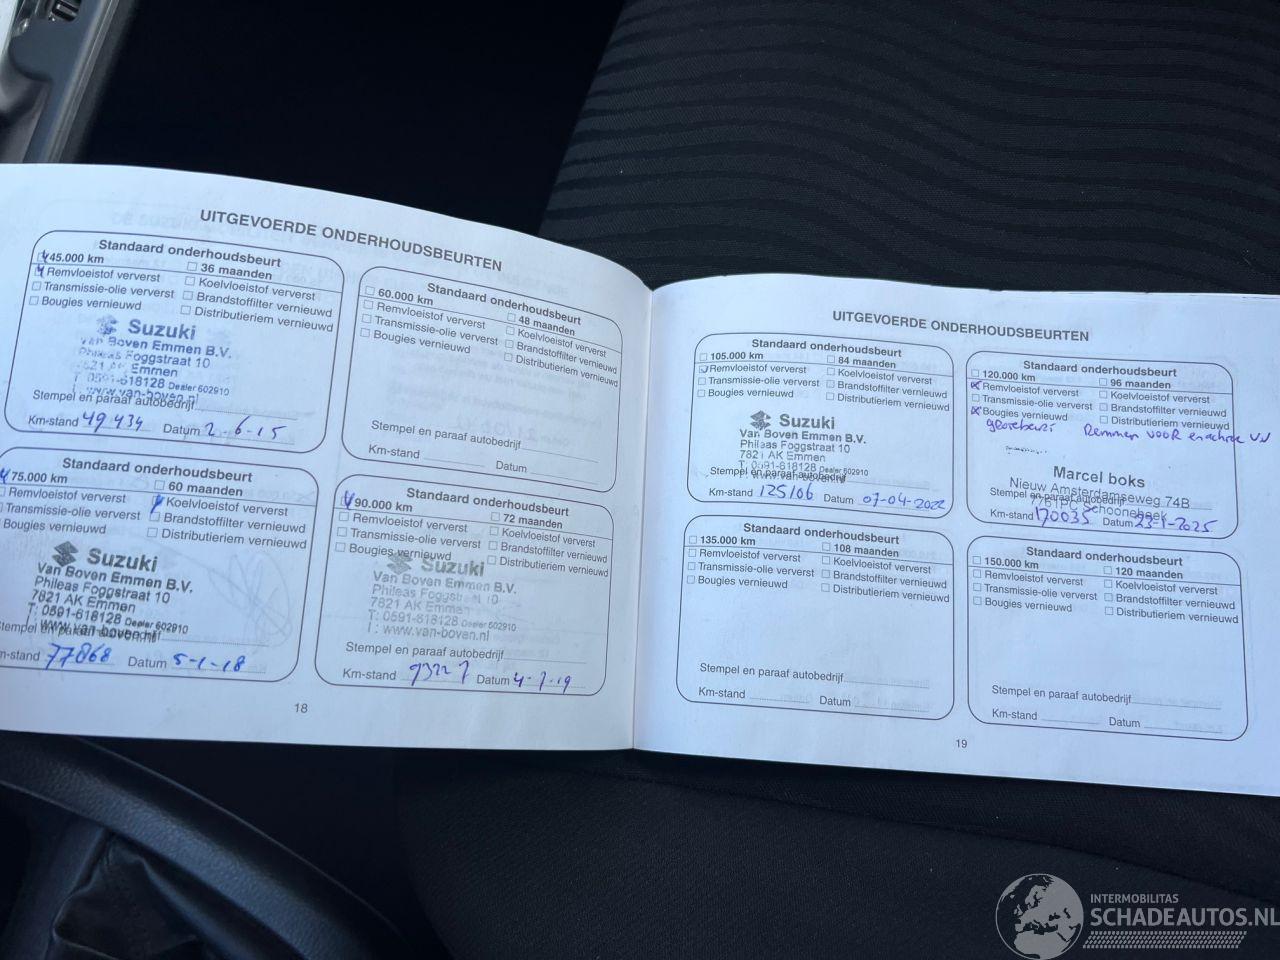 UITGEVOERDE ONDERHOUDSBEURTEN
Standaard onderhoudsbeurt
45.000 km
36 maanden
Remvloeistof ververst
Koelvloeistof ververst
Transmissie-olie ververst
Brandstoffilter vernieuwd
Bougies vernieuwd
Distributieriem vernieuwd
Suzuki
Van Boven Emmen B.V.
Phileas Foggstraat 10
7821 AK Emmen
T: 0591-618128 Dealer 602910
www.van-boven.nl
Stempel en paraaf autobedrijf
Km-stand 49434 Datum 2-6-15
Standaard onderhoudsbeurt
60.000 km
48 maanden
Remvloeistof ververst
Koelvloeistof ververst
Transmissie-olie ververst
Brandstoffilter vernieuwd
Bougies vernieuwd
Distributieriem vernieuwd
Stempel en paraaf autobedrijf
Km-stand Datum
Standaard onderhoudsbeurt
75.000 km
60 maanden
Remvloeistof ververst
Koelvloeistof ververst
Transmissie-olie ververst
Brandstoffilter vernieuwd
Bougies vernieuwd
Distributieriem vernieuwd
Suzuki
Van Boven Emmen B.V.
Phileas Foggstraat 10
7821 AK Emmen
T: 0591-618128 Dealer 602910
Stempel en paraaf autobedrijf
www.van-boven.nl
Km-stand 77868 Datum 5-1-18
Standaard onderhoudsbeurt
90.000 km
72 maanden
Remvloeistof ververst
Koelvloeistof ververst
Transmissie-olie ververst
Brandstoffilter vernieuwd
Bougies vernieuwd
Distributieriem vernieuwd
Suzuki
Van Boven Emmen B.V.
Phileas Foggstraat 10
7821 AK Emmen
T: 0591-618128 Dealer 602910
T: www.van-boven.nl
Stempel en paraaf autobedrijf
Km-stand Datum 4-7-19
18
UITGEVOERDE ONDERHOUDSBEURTEN
Standaard onderhoudsbeurt
105.000 km
84 maanden
Remvloeistof ververst
Koelvloeistof ververst
Transmissie-olie ververst
Brandstoffilter vernieuwd
Bougies vernieuwd
Distributieriem vernieuwd
Suzuki
Van Boven Emmen B.V.
Phileas Foggstraat 10
7821 AK Emmen
T: 0591-618128 Dealer 602910
Stempel en paraaf autobedrijf
www.van-boven.nl
Km-stand 125106 Datum 07-04-2022
Standaard onderhoudsbeurt
120.000 km
96 maanden
Remvloeistof ververst
Koelvloeistof ververst
Transmissie-olie ververst
Brandstoffilter vernieuwd
Bougies vernieuwd
Distributieriem vernieuwd
Remmen voor en achter VV
Marcel boks
Nieuw Amsterdamseweg 74B
Stempel en paraaf autobedrijf
7761PC Schoonebeek
Km-stand 170035 Datum 23-1-2025
Standaard onderhoudsbeurt
135.000 km
108 maanden
Remvloeistof ververst
Koelvloeistof ververst
Transmissie-olie ververst
Brandstoffilter vernieuwd
Bougies vernieuwd
Distributieriem vernieuwd
Stempel en paraaf autobedrijf
Km-stand Datum
Standaard onderhoudsbeurt
150.000 km
120 maanden
Remvloeistof ververst
Koelvloeistof ververst
Transmissie-olie ververst
Brandstoffilter vernieuwd
Bougies vernieuwd
Distributieriem vernieuwd
Stempel en paraaf autobedrijf
Km-stand Datum
19
INTERMOBILITAS
SCHADEAUTOS.NL